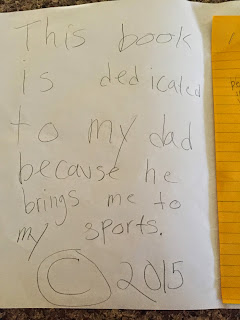 This book
is dedicated
to my dad
because he
brings me to
my sports.
© 2015